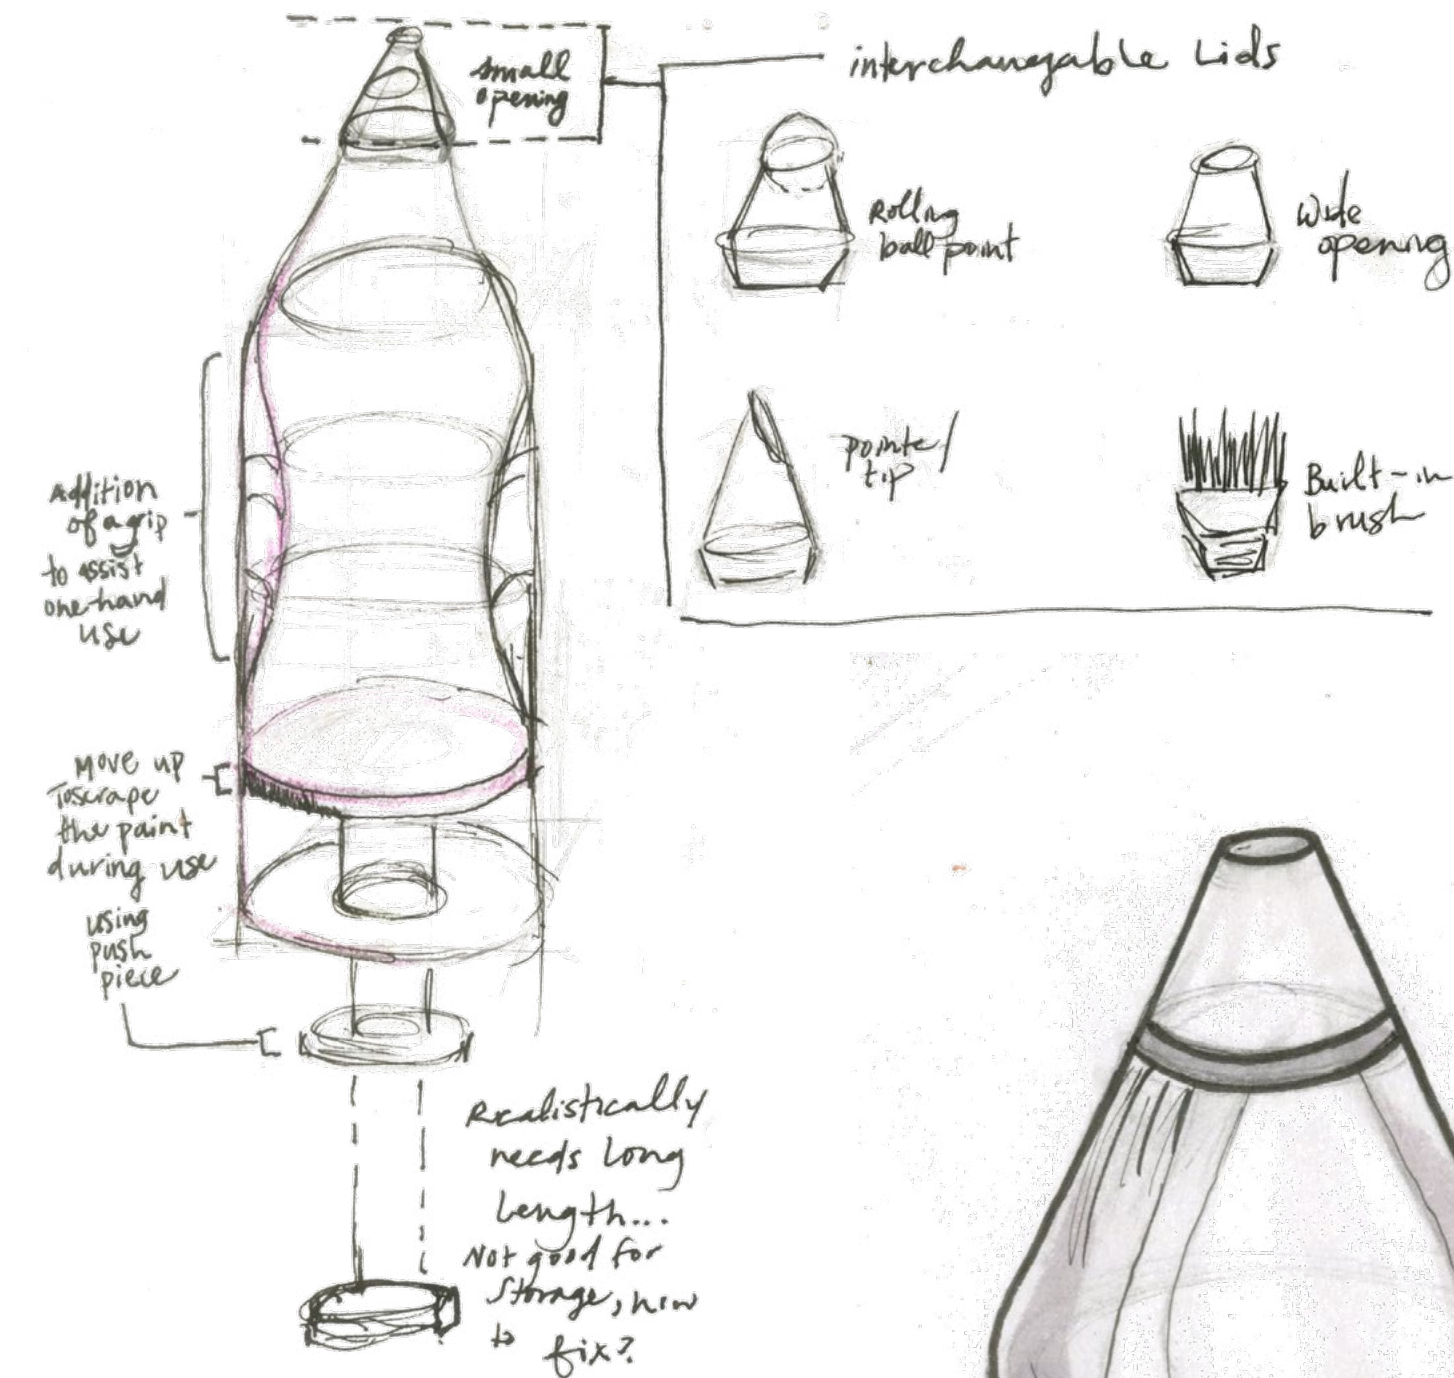 small
opening
interchangable Lids
Rolling
ball point
Wide
opening
pointe/
tip
Built-in
brush
Addition
of a grip
to assist
one-hand
use
Move up
To scrape
the paint
during use
using
push
piece
Realistically
needs long
length...
Not good for
storage, how
to
fix?